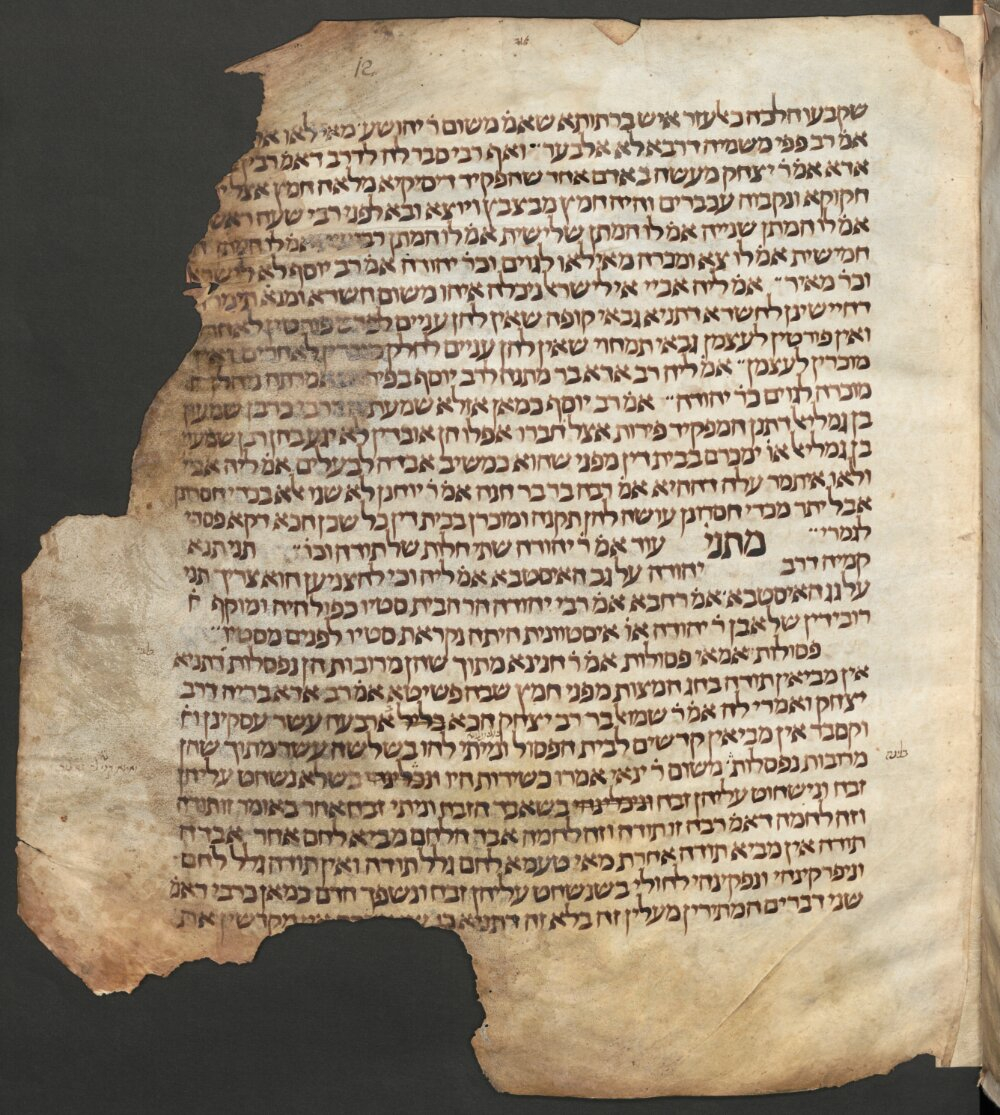 שקבעו הלכה כאלעזר איש ברתותא שאמ׳ משום ר׳ יהושע מאי לאו
אמ׳ רב פפי משמיה דרבא לא אלבער ואף רבי סבר לה לדרב דאמ׳ רבין
אדא אמ׳ ר׳ יצחק מעשה באדם אחד שהפקיד דיסיקיא מלאה חמץ אצל
חקוקא ונקבוה עכברים והיה חמץ מבצבץ ויוצא ובא לפני רבי שעה
אמ׳ לו המתן שנייה אמ׳ לו המתן שלישית אמ׳ לו המתן
חמישית אמ׳ לו צא ומכרה מאי לאו לגוים וכר׳ יהודה אמ׳ רב יוסף לא לישראל
וכר׳ מאיר אמ׳ ליה אביי אי לישראל ניכלה איהו משום חשדא
דחיישינן לחשדא דתניא גבאי קופה שאין להן עניים
ואין פורטין לעצמן גבאי תמחוי שאין להן עניים לחלק
מוכרין לעצמן אמ׳ ליה רב אדא בר מתנה לרב יוסף
מוכרה לגוים כר׳ יהודה אמ׳ רב יוסף כמאן אזלא שמעת׳ דרבי כרבן שמעון
בן גמליאל דתנן המפקיד פירות אצל חברו אפלו הן אובדין לא יגע בהן רבן שמעון
בן גמליאל או׳ ימכרם בבית דין מפני שהוא כמשיב אבדה לבעלים אמ׳ ליה אביי
ולאו איתמר עלה דההיא אמ׳ רבה בר בר חנה אמ׳ ר׳ יוחנן לא שנו אלא בכדי חסרונן
אבל יתר מכדי חסרונן עושה להן תקנה ומוכרן בבית דין כל שכן הכא דקא פסדי
לגמרי מתני עוד אמ׳ ר׳ יהודה שתי חלות של תודה וכו׳ תני תנא
קמיה דרב יהודה על גב האיסטבא אמ׳ ליה וכי להצניען הוא צריך תני
על גג האיסטבא אמ׳ רחבא אמ׳ רבי יהודה הר הבית סטיו כפול היה ומוקף
רובידין של אבן ר׳ יהודה או׳ איסטוונית היתה נקראת סטיו לפנים מסטיו
פסולות אמאי פסולות אמ׳ ר׳ חנינא מתוך שהן מרובות הן נפסלות דתניא
אין מביאין תודה בחג המצות מפני חמץ שבה פשיטא אמ׳ רב אדא בריה דרב
יצחק ואמרי לה אמ׳ ר׳ שמואל בר רב יצחק הכא בליל ארבעה עשר עסקינן
וקסבר אין מביאין קדשים לבית הפסול וניתי להו בשלשה עשר מתוך שהן
מרובות נפסלות משום ר׳ ינאי אמרו כשירות היו ונכלינהי בשלא נשחט עליהן
זבח ונישחוט עליהן זבח וניכלינהי בשאבד הזבח וניתי זבח אחר באומר זו תודה
וזה לחמה דאמ׳ רבה זו תודה וזה לחמה אבד הלחם מביא לחם אחר אבדה
תודה אין מביא תודה אחרת מאי טעמא לחם גלל תודה ואין תודה גלל לחם
וניפרקינהי ונפקינהי לחולי בשנשחט עליהן זבח ונשפך הדם כמאן כרבי דאמ׳
שני דברים המתירין מעלין זה בלא זה דתניא